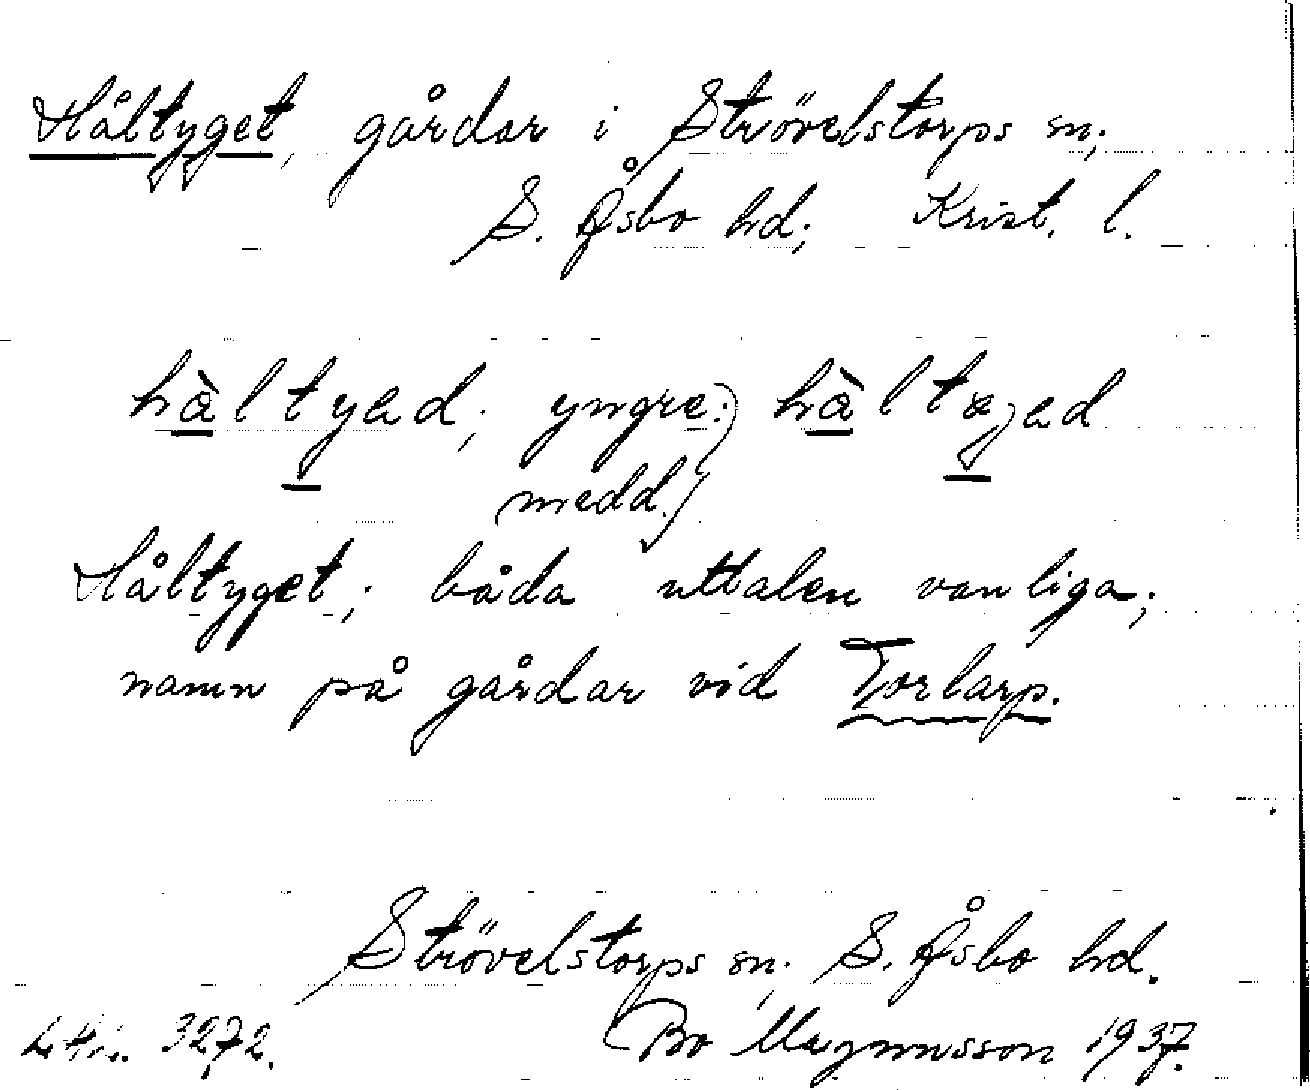 Håltyget, gårdar i Strövelstorps sn;
S. Åsbo hd; Krist. l.
hàltyed; yngre: hàltøjed
medd.
Håltyget; båda uttalen vanliga;
namn på gårdar vid Torlarp.
Strövelstorps sn; S. Åsbo hd.
3272. Bo Magnusson 1937.